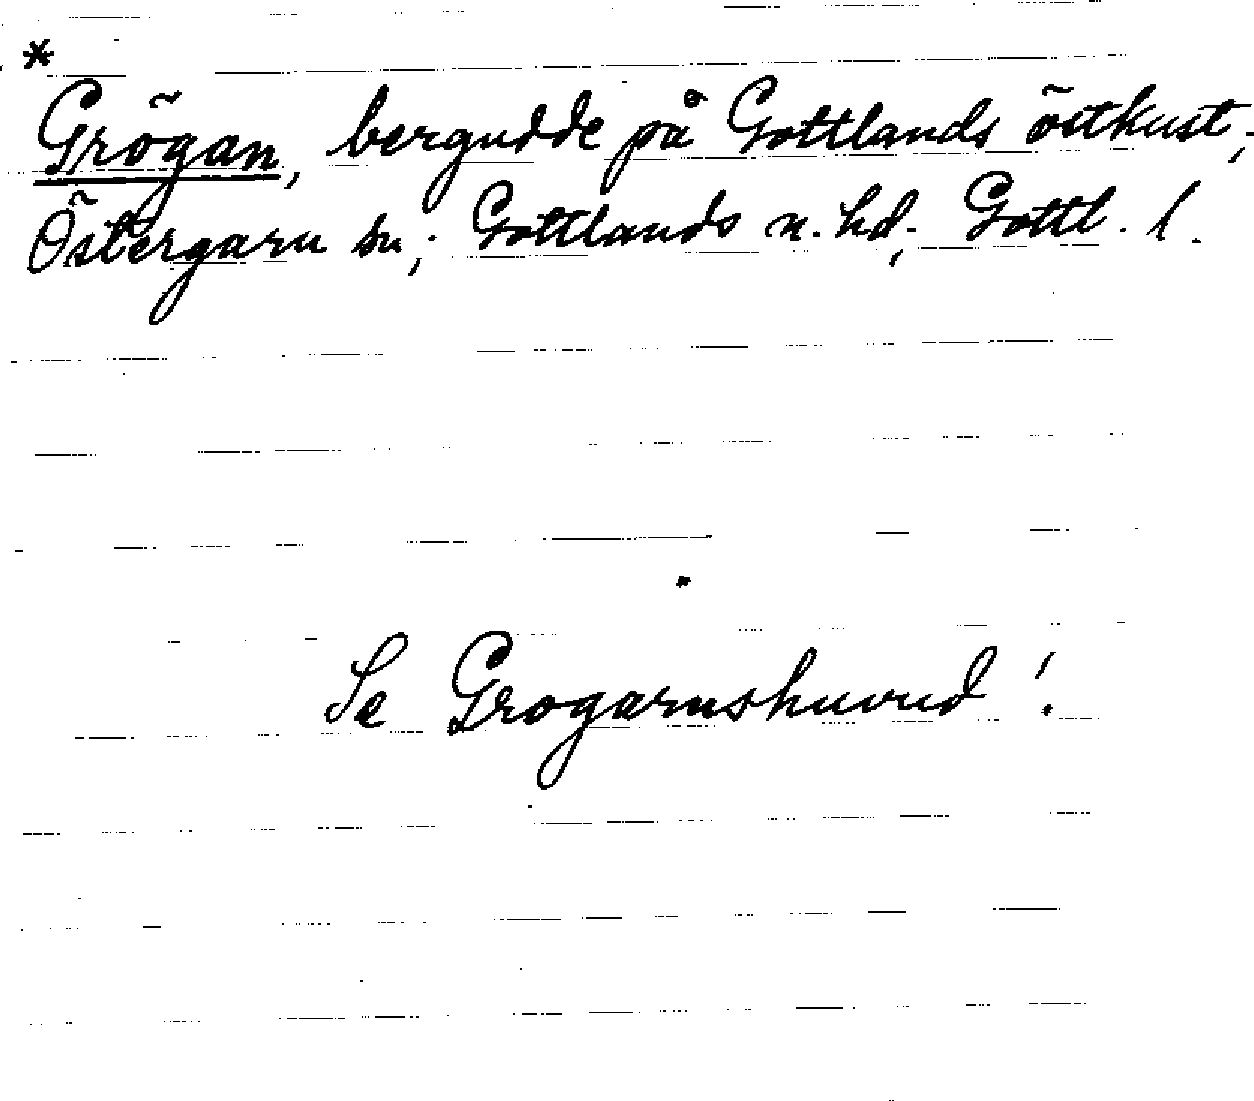 *
Grögan, bergudde på Gottlands östkust;
Östergarn sn; Gottlands n. hd; Gottl. l.
Se Grogarnshuvud!